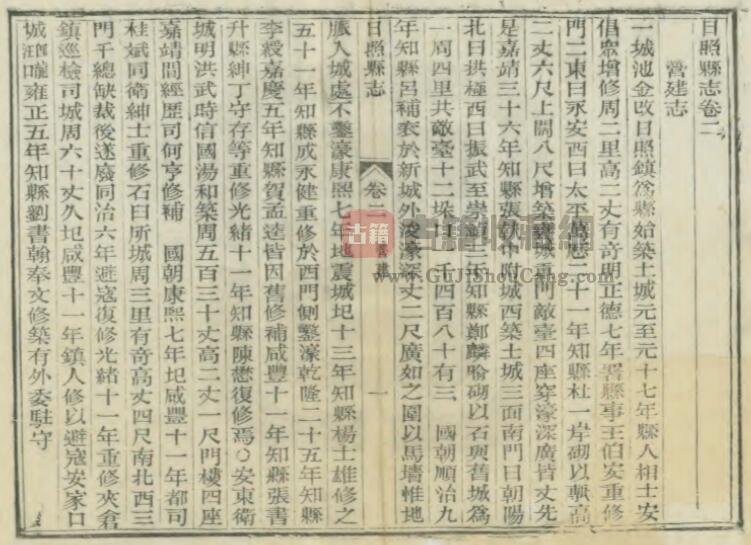 日照縣志卷二
營建志
一城池金改日照鎮爲縣始築土城元至元十七年縣人相士安
倡衆增修周二里高二丈有奇明正德七年署縣事王伯安重修
門二東曰永安西曰太平萬歷二十一年知縣杜一岸砌以甎高
二丈六尺上闊八尺增築甕城重門敵臺四座穿濠深廣皆丈先
是嘉靖三十六年知縣張執中附城西築土城三面南門曰朝陽
北曰拱極西曰振武至崇禎三年知縣鄭麟喻砌以石與舊城爲
一周四里共敵臺十二垜口一千四百八十有三 國朝順治九
年知縣呂補袞於新城外浚濠深丈二尺廣如之圍以馬墻惟地
日照縣志 卷二 營建 一
脈入城處不鑿濠康熙七年地震城圮十三年知縣楊士雄修之
五十一年知縣成永健重修於西門側鑿濠乾隆二十五年知縣
李綬嘉慶五年知縣賀孟逵皆因舊修補咸豐十一年知縣張書
升縣紳丁守存等重修光緒十一年知縣陳懋復修焉○安東衛
城明洪武時信國湯和築周五百三十丈高二丈一尺門樓四座
嘉靖間經歷司何亨修補 國朝康熙七年圮咸豐十一年都司
桂斌同衛紳士重修石臼所城周三里有奇高丈四尺南北西三
門千總缺裁後遂廢同治六年避寇復修光緒十一年重修夾倉
鎮巡檢司城周六十丈久圮咸豐十一年鎮人修以避寇安家口
城雍正五年知縣劉書翰奉文修築有外委駐守
古籍收藏网
www.GTJShouCang.com